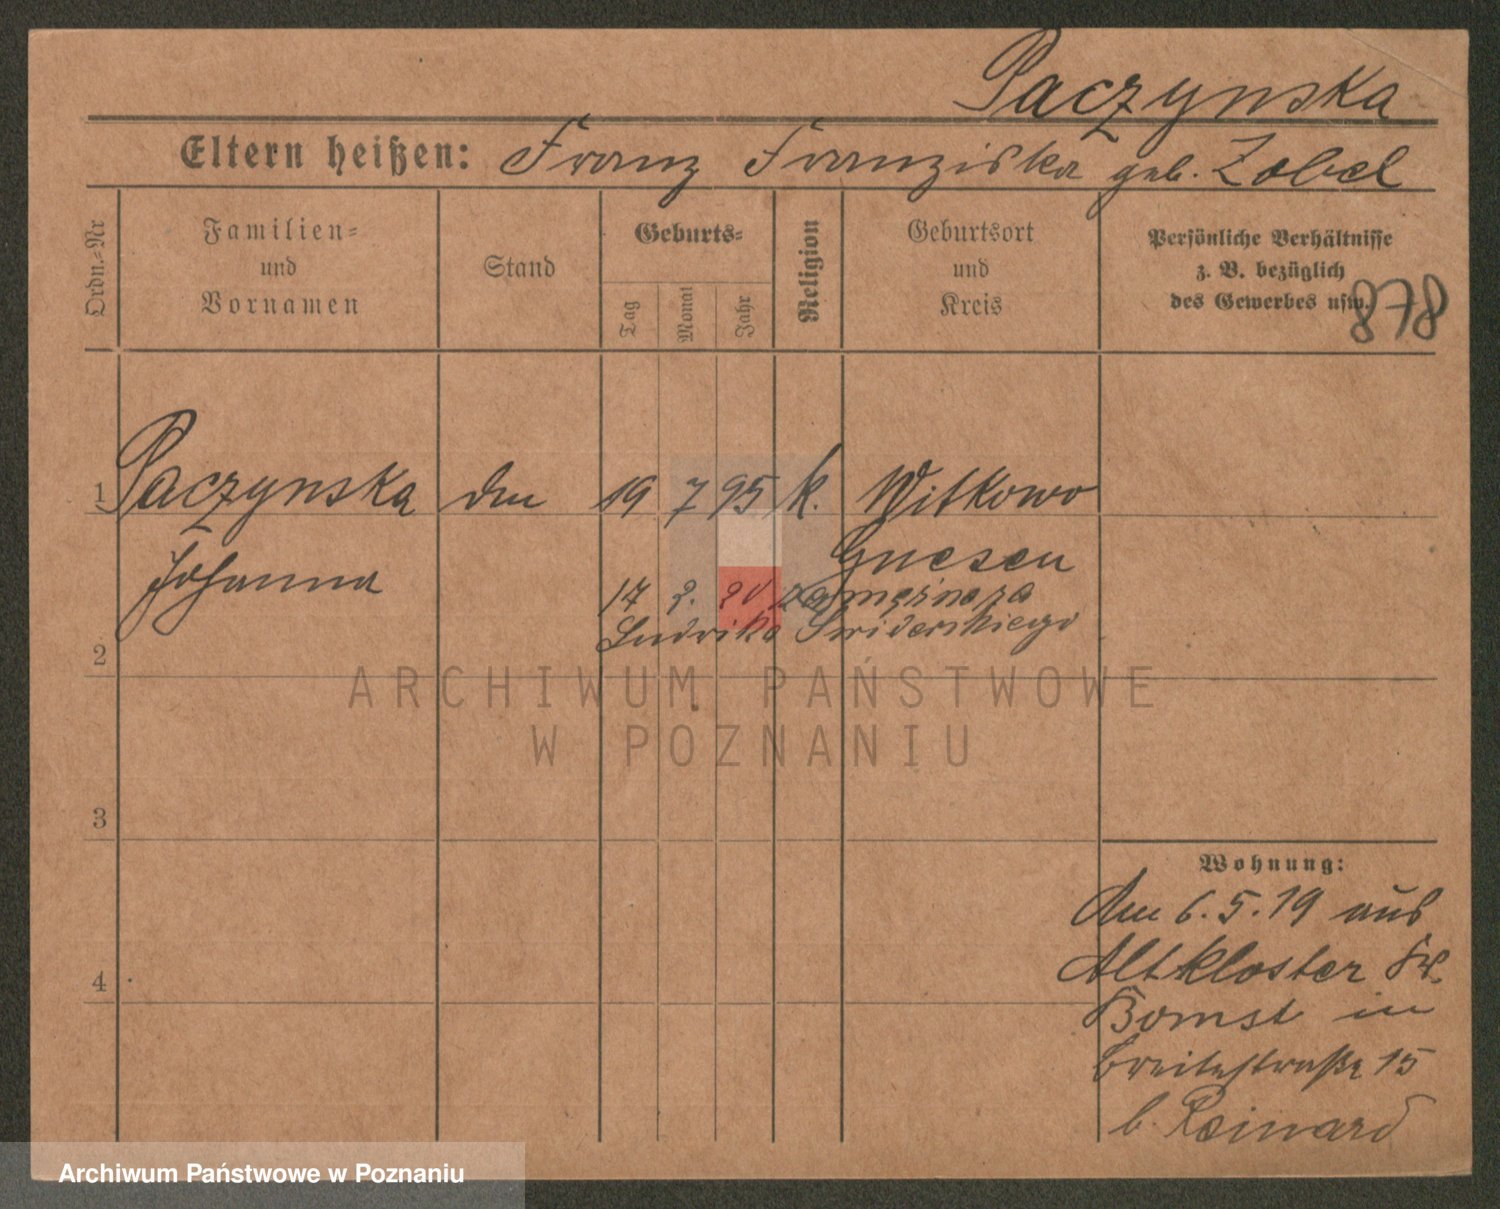 Paczynska
Eltern heißen: Franz Franziska geb. Zobel
Ordn.-Nr
Familien-
und
Vornamen
Stand
Geburts-
Tag
Monat
Jahr
Religion
Geburtsort
und
Kreis
Persönliche Verhältnisse
z. B. bezüglich
des Gewerbes usw.
878
1 Paczynska 19 7 95 k. Witkowo
Johanna Gnesen
17 2. 20 zamężna za
2 Ludwika Swiderskiego
ARCHIWUM PAŃSTWOWE
W POZNANIU
3
4
Wohnung:
Am 6.5.19 aus
Altkloster Kr.
Bomst in
Breitestraße 15
b. Reinard
Archiwum Państwowe w Poznaniu